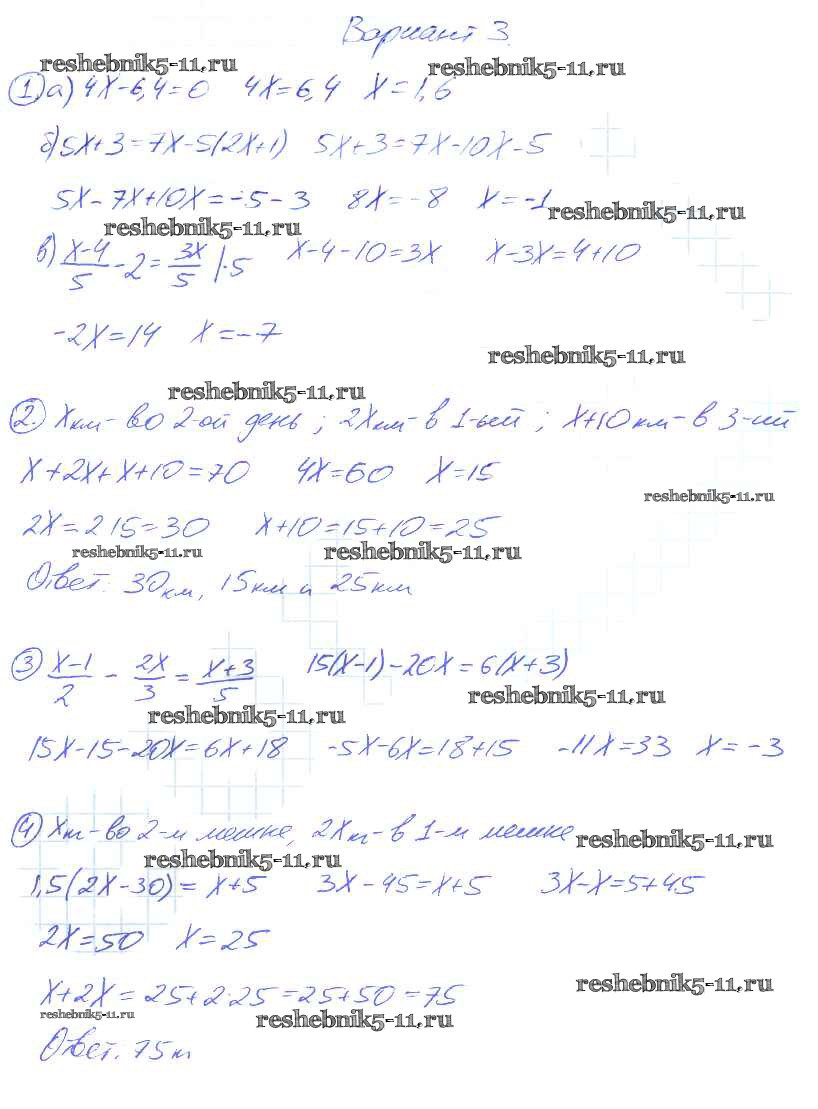 Вариант 3.
reshebnik5-11.ru reshebnik5-11.ru
1) а) 4x-6,4=0 4x=6,4 x=1,6
б) 5x+3=7x-5(2x+1) 5x+3=7x-10x-5
5x-7x+10x=-5-3 8x=-8 x=-1
reshebnik5-11.ru
reshebnik5-11.ru
в) (x-4)/5 - 2 = 3x/5 |·5 x-4-10=3x x-3x=4+10
-2x=14 x=-7
reshebnik5-11.ru
reshebnik5-11.ru
2. x км - во 2-ой день; 2x км - в 1-ый; x+10 км - в 3-ий
x+2x+x+10=70 4x=60 x=15
reshebnik5-11.ru
2x=2·15=30 x+10=15+10=25
reshebnik5-11.ru reshebnik5-11.ru
Ответ: 30 км, 15 км и 25 км
3) (x-1)/2 - 2x/3 = (x+3)/5 15(x-1)-20x=6(x+3)
reshebnik5-11.ru
reshebnik5-11.ru
15x-15-20x=6x+18 -5x-6x=18+15 -11x=33 x=-3
4) x кг - во 2-м мешке, 2x кг - в 1-м мешке
reshebnik5-11.ru
reshebnik5-11.ru
1,5(2x-30)=x+5 3x-45=x+5 3x-x=5+45
2x=50 x=25
reshebnik5-11.ru
x+2x=25+2·25=25+50=75
reshebnik5-11.ru reshebnik5-11.ru
Ответ. 75 кг